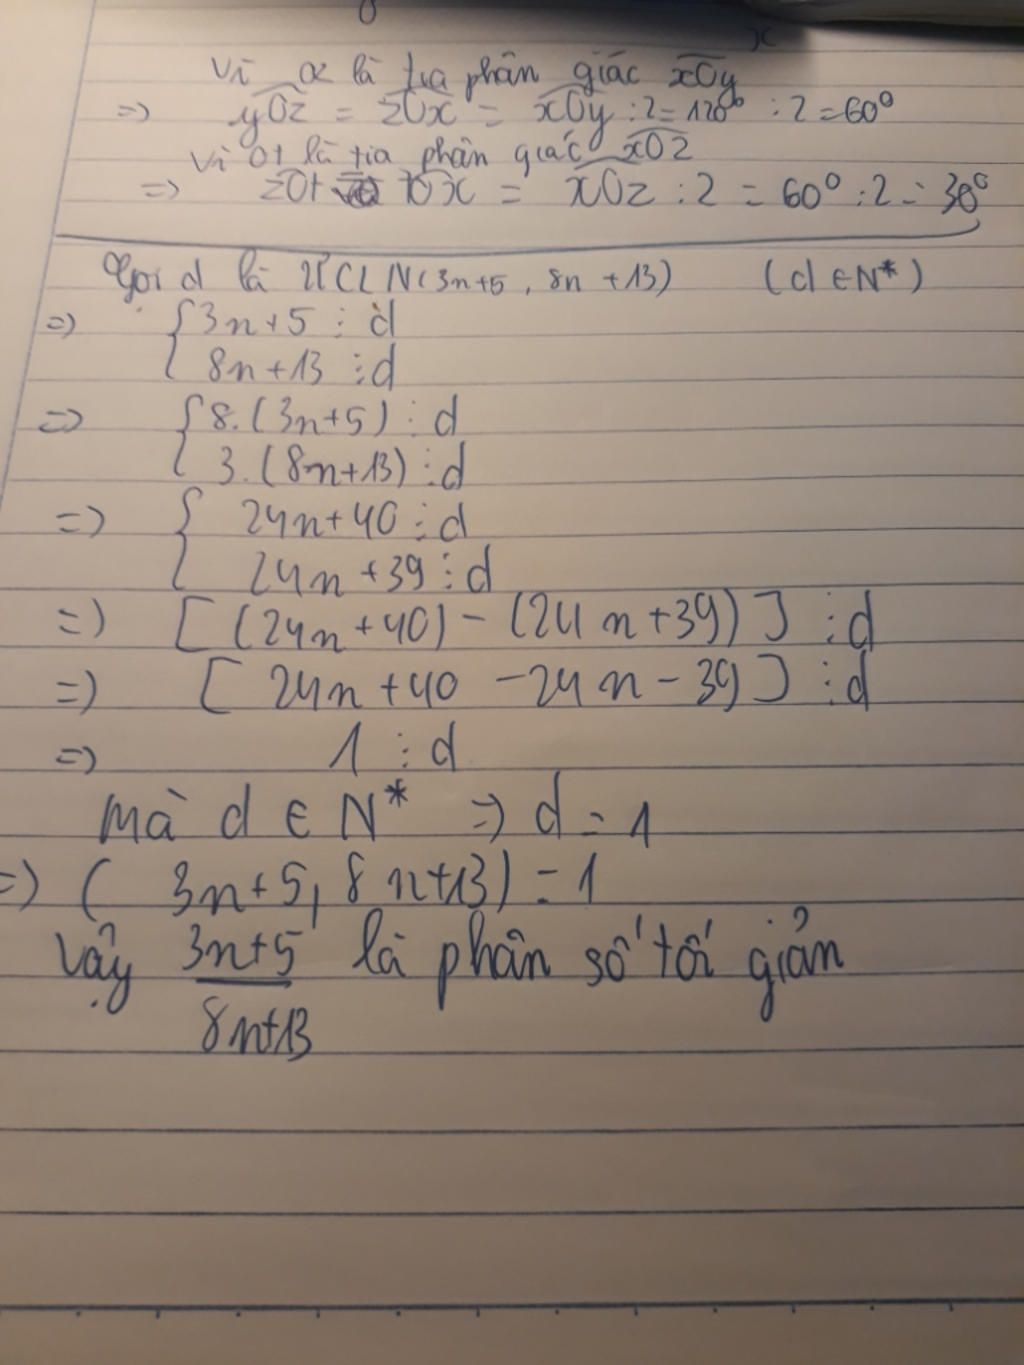 Vì Oz là tia phân giác xOy
=> yOz = zOx = xOy : 2 = 120° : 2 = 60°
Vì Ot là tia phân giác xOz
=> zOt = tOx = xOz : 2 = 60° : 2 = 30°
Gọi d là ƯCLN(3n+5, 8n+13) (d ∈ N*)
=> { 3n+5 ⋮ d
8n+13 ⋮ d
=> { 8.(3n+5) ⋮ d
3.(8n+13) ⋮ d
=> { 24n+40 ⋮ d
24n+39 ⋮ d
=> [(24n+40) - (24n+39)] ⋮ d
=> [24n+40 - 24n - 39] ⋮ d
=> 1 ⋮ d
Mà d ∈ N* => d = 1
=> (3n+5, 8n+13) = 1
Vậy 3n+5 là phân số tối giản
8n+13